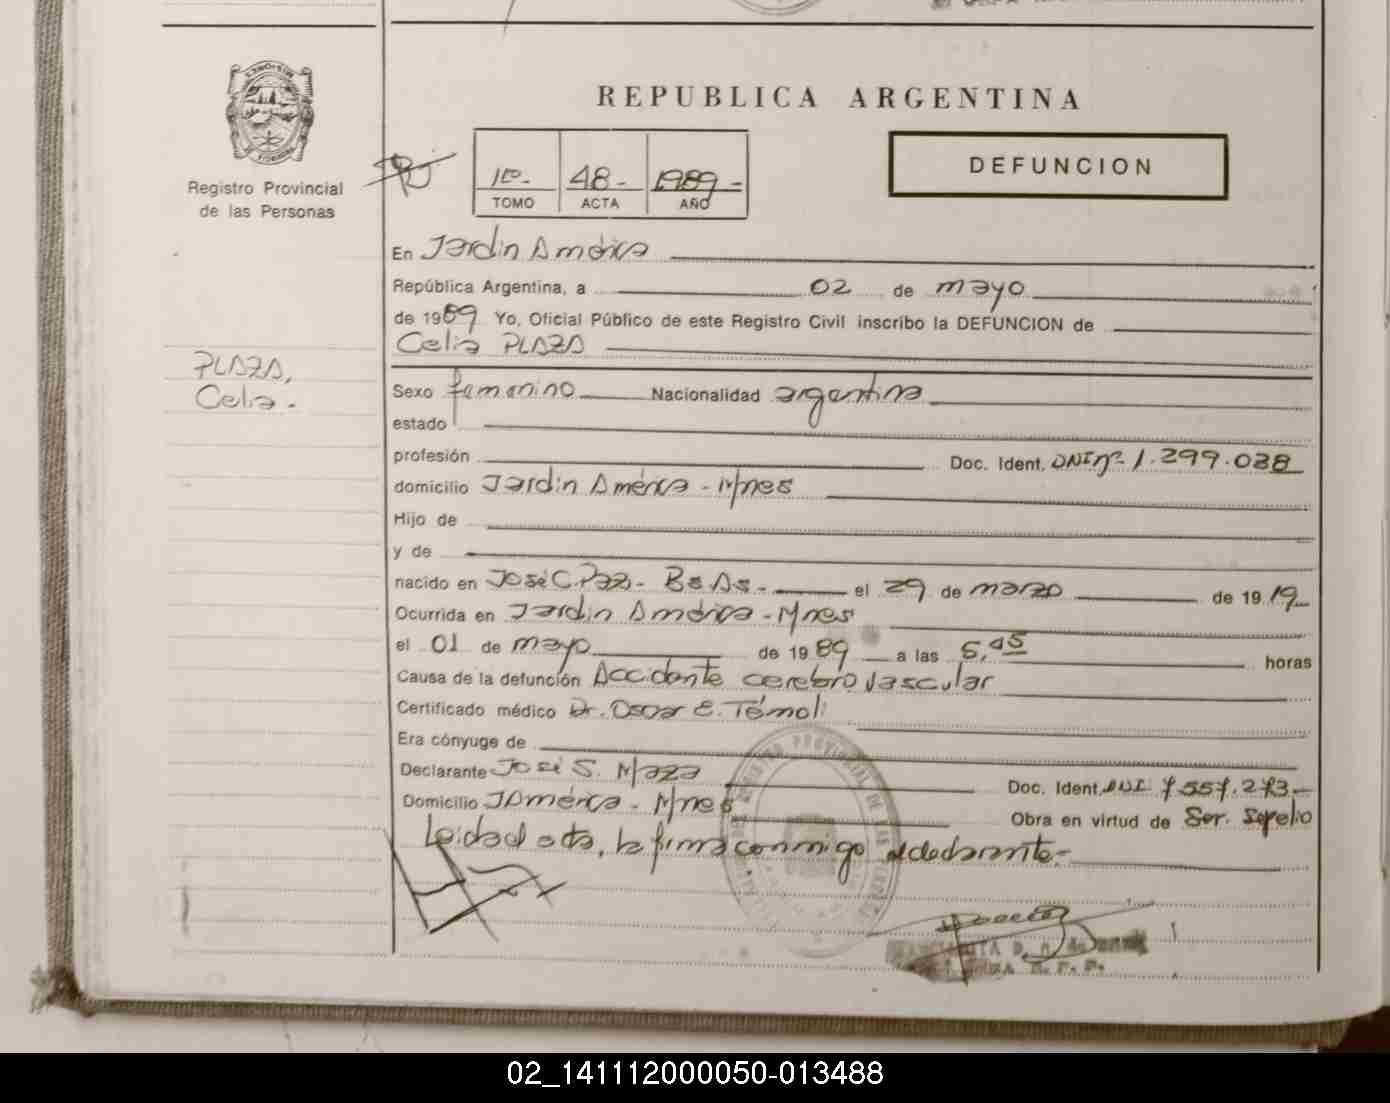 REPUBLICA ARGENTINA
Registro Provincial
de las Personas
1º- 48- 1989-
TOMO ACTA AÑO
DEFUNCION
En Jardín América
República Argentina, a 02 de mayo
de 1989 Yo, Oficial Público de este Registro Civil inscribo la DEFUNCION de
Celia PLAZA
PLAZA,
Celia.-
Sexo femenino Nacionalidad argentina
estado
profesión Doc. Ident. DNI nº 1.299.038
domicilio Jardín América - Mnes
Hijo de
y de
nacido en José C. Paz - Bs As - el 29 de marzo de 19 19
Ocurrida en Jardín América - Mnes
el 01 de mayo de 19 89 a las 5,45 horas
Causa de la defunción Accidente cerebro vascular
Certificado médico Dr. Oscar E. Témoli
Era cónyuge de
Declarante José S. Maza Doc. Ident. DNI 7.557.273-
Domicilio J América - Mnes Obra en virtud de Ser. Sepelio
Leida el acta, la firma conmigo el declarante-
REGISTRO PROVINCIAL DE LAS
02_141112000050-013488